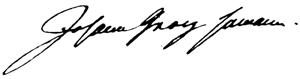 Johann Georg Hamann.